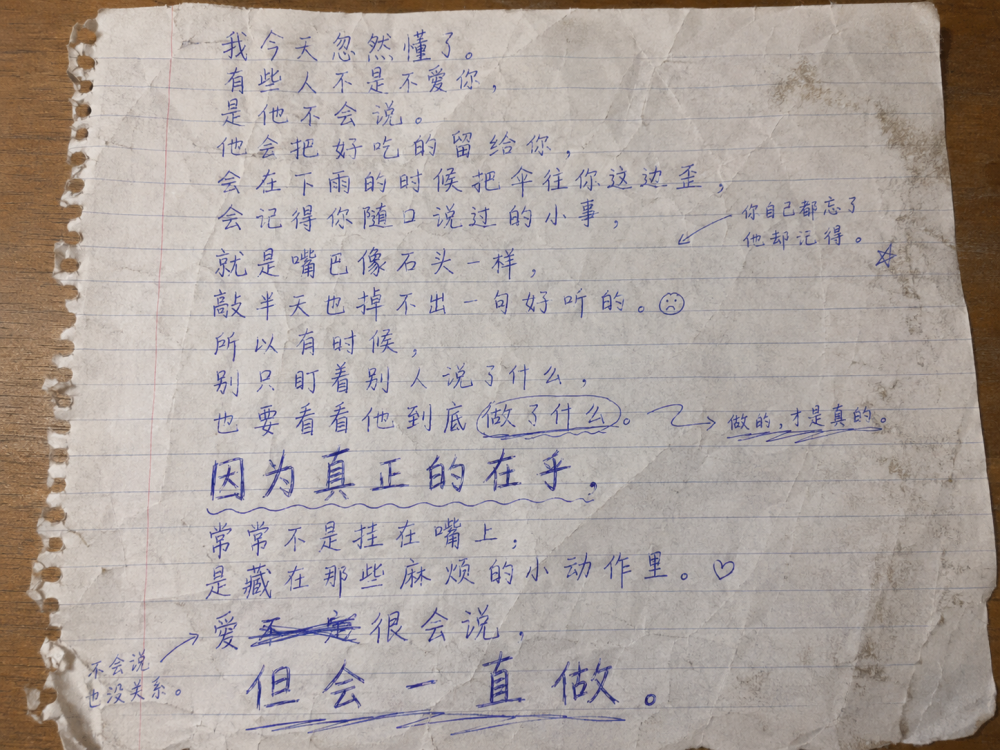 我今天忽然懂了。
有些人不是不愛你，
是他不会说。
他会把好吃的留给你，
会在下雨的时候把伞往你这边歪，
会记得你随口说过的小事，
你自己都忘了
他却记得。
就是嘴巴像石头一样，
敲半天也掉不出一句好听的。
所以有时候，
别只盯着别人说了什么，
也要看看他到底做了什么。
做的，才是真的。
因为真正的在乎，
常常不是挂在嘴上，
是藏在那些麻烦的小动作里。♡
愛不一定很会说，
不会说
也没关系。
但会一直做。